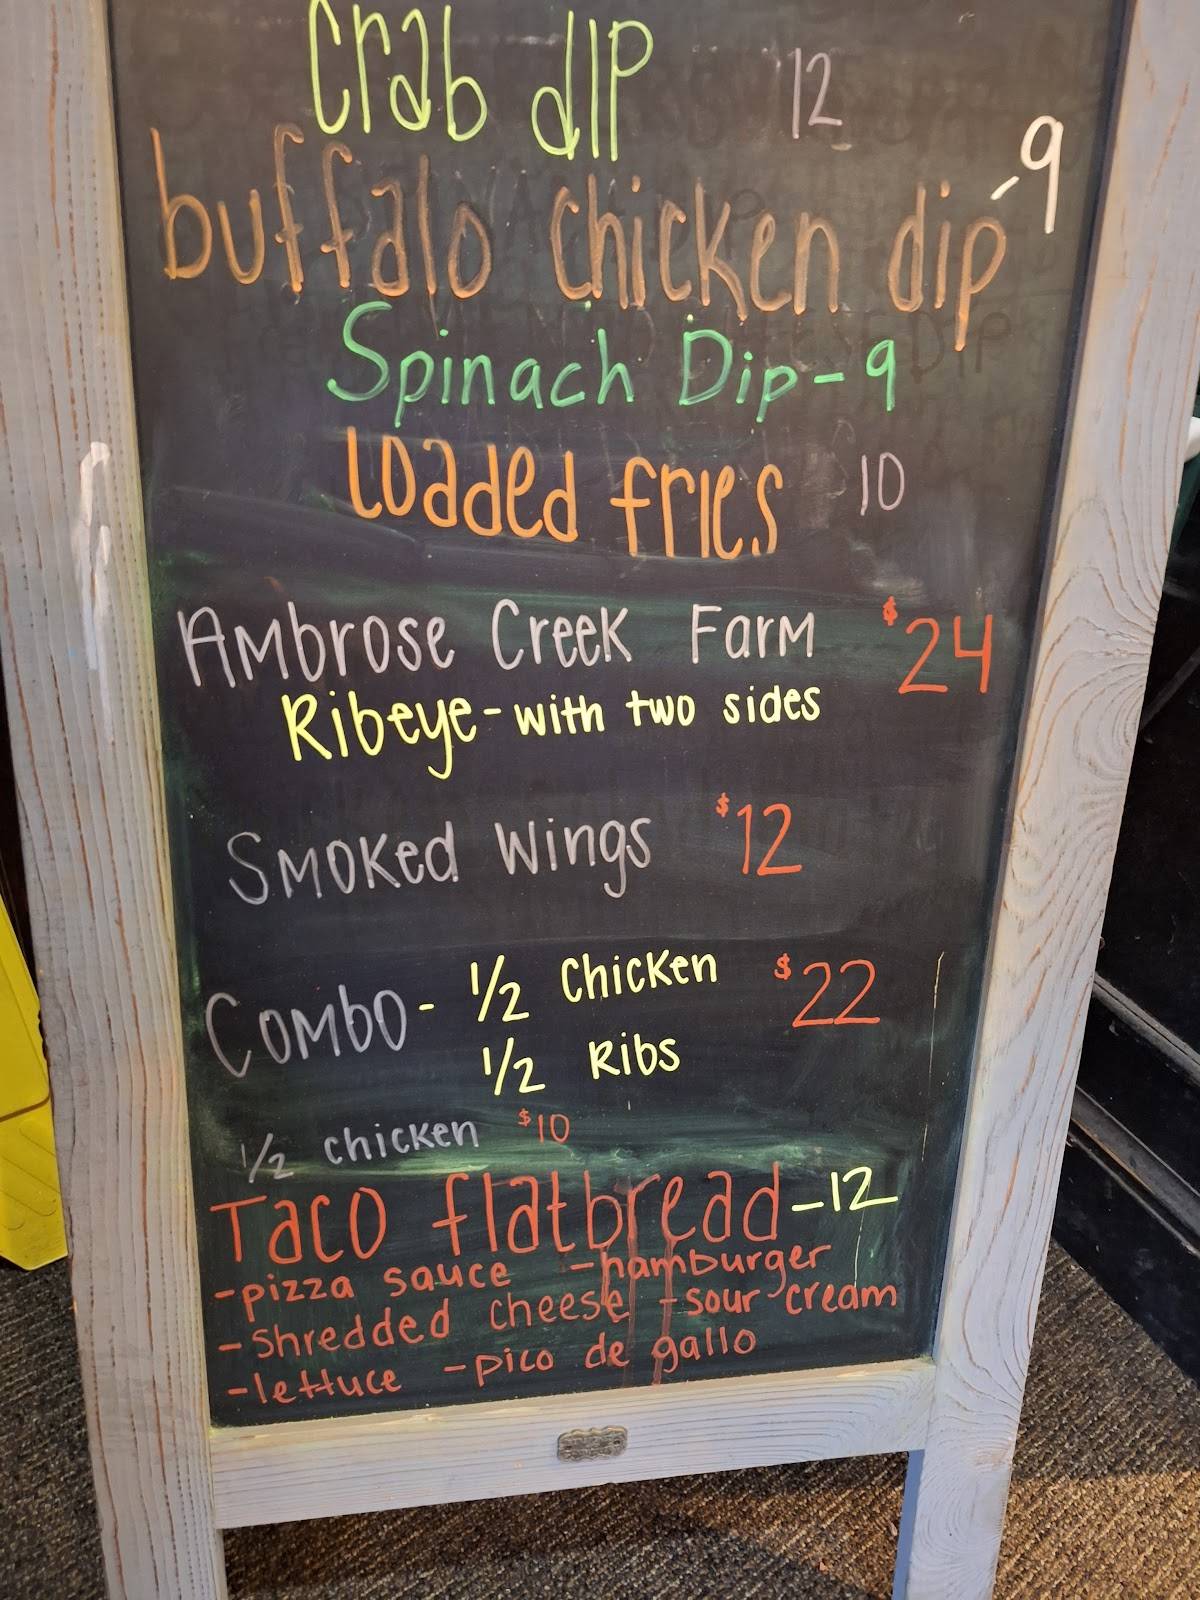 Crab dip 12
buffalo chicken dip -9
Spinach Dip - 9
loaded fries 10
Ambrose Creek Farm $24
Ribeye - with two sides
Smoked Wings $12
Combo - 1/2 Chicken $22
1/2 Ribs
1/2 chicken $10
Taco flatbread - 12
- pizza sauce - hamburger
- shredded cheese - sour cream
- lettuce - pico de gallo